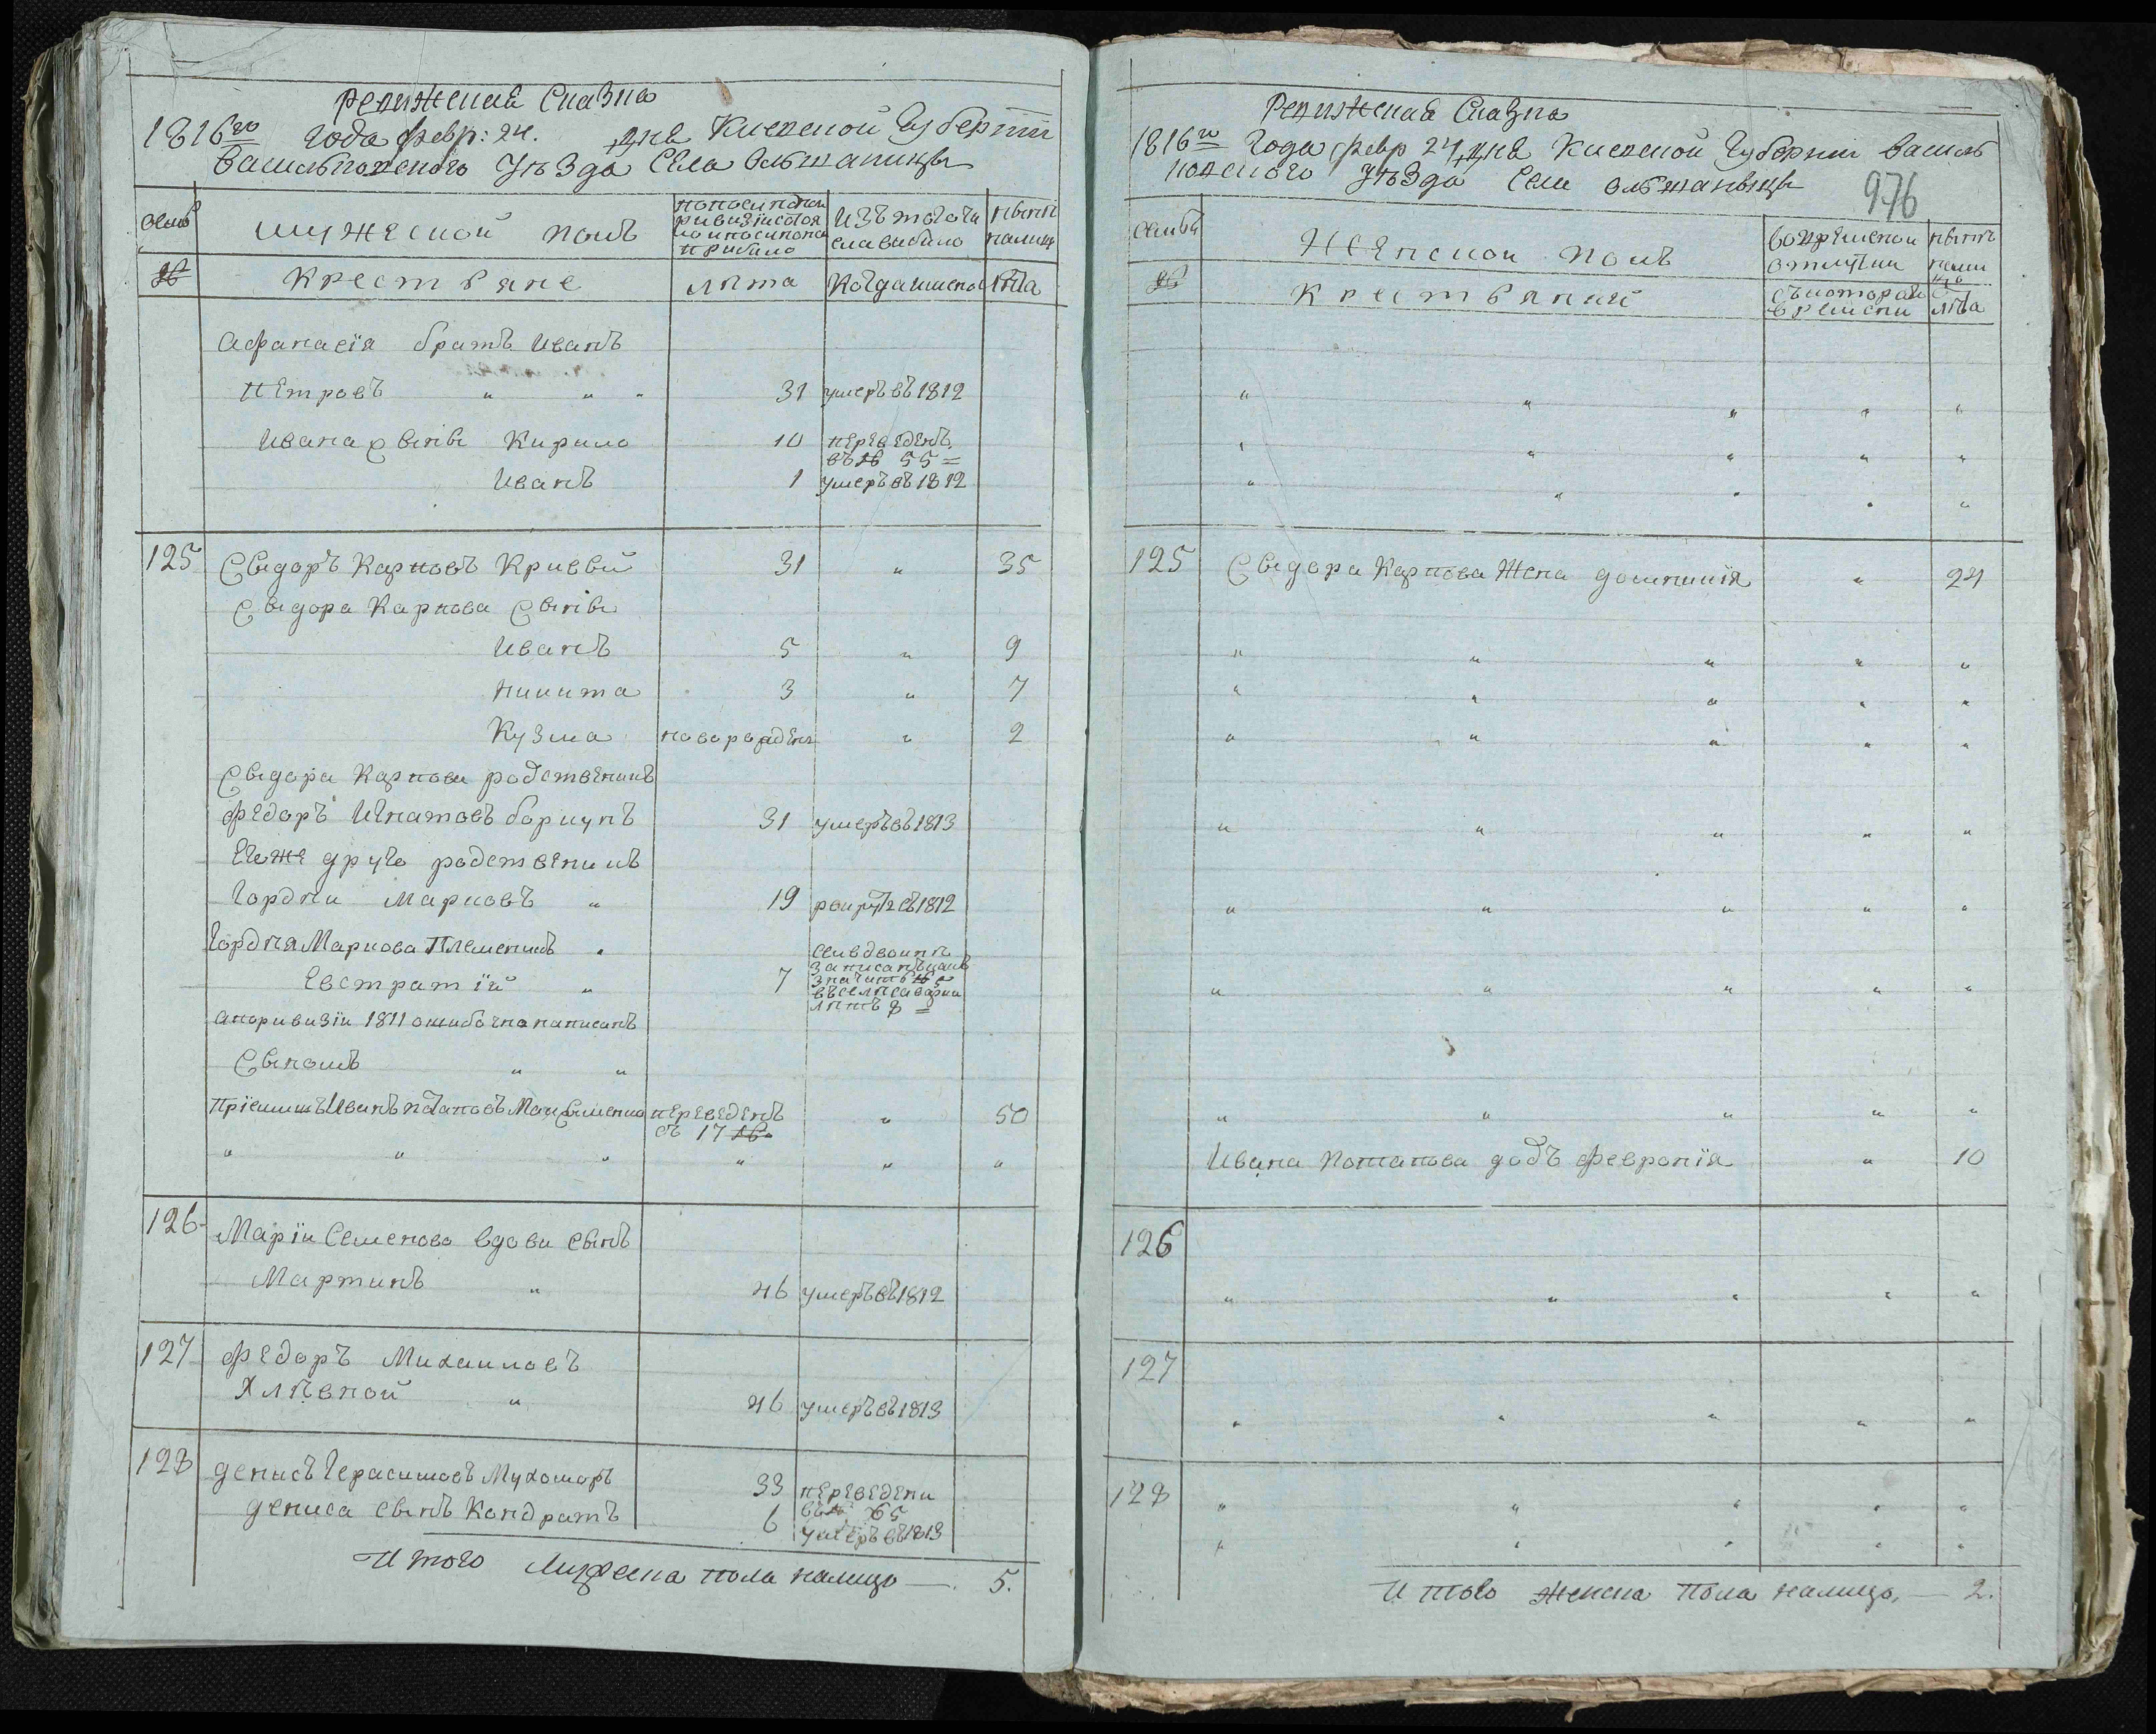 Ревижская Сказка
1816го года февр: 24. дня Киевской Губерніи
Васильковского Уѣзда Села Ольшаницы
Семьи
мужеской полъ
по последней
ревизіи состояло
и после того
прибыло
Изъ того числа
выбыло
Нынѣ
налицо
№
Крестьяне
лѣта
Когда именно
лѣта
Афанасія братъ Иванъ
Петровъ " " " 31 умеръ въ 1812
Ивана Сыны Кирило 10 переведенъ
въ № 55 =
Иванъ 1 умеръ въ 1812
125 Сыдоръ Карповъ Кривый 31 " 35
Сыдора Карпова Сыны
Иванъ 5 " 9
Никита 3 " 7
Кузма новорожденъ " 2
Сыдора Карпова родственикъ
Федоръ Игнатовъ 31 умеръ въ 1813
Егоже друго родственикъ
Гордѣи Марковъ " 19 рекрутъ въ 1812
Гордѣя Маркова Племеникъ "
Евстратій " 7
записанъ
лѣтъ 8 =
а по ривизіи 1811 ошибочно написанъ
Сыномъ " "
Пріемишъ Иванъ Потаповъ переведенъ " 50
съ 17 №
" " " " " "
126 Маріи Семеново вдовы сынъ
Мартинъ " 46 умеръ въ 1812
127 Федоръ Михаиловъ
Хлѣвной " 46 умеръ въ 1813
128 Денисъ Герасимовъ Мухоморъ 33 переведени
Дениса сынъ Кондратъ 6 въ № 65
умеръ въ 1813
Итого Мужеска пола налицо — 5.
Ревижская Сказка
1816го Года февр 24 дня Киевской Губерніи Василь
ковского Уѣзда Села Ольшаницы
976
Семьи
Женской полъ
Во временной
отлучки
Нынѣ
нали
цо
№
Крестьяний
съ которого
времени
лѣта
" " " " "
" " " " "
" " " " "
125 Сыдора Карпова Жена Домникія " 24
" " " " "
" " " " "
" " " " "
" " " " "
" " " " "
" " " " "
" " " " "
Ивана Потапова дочь Февронія " 10
126
" " " " "
127
" " " " "
128 " " " " "
" " " " "
Итого Женска Пола налицо, — 2.